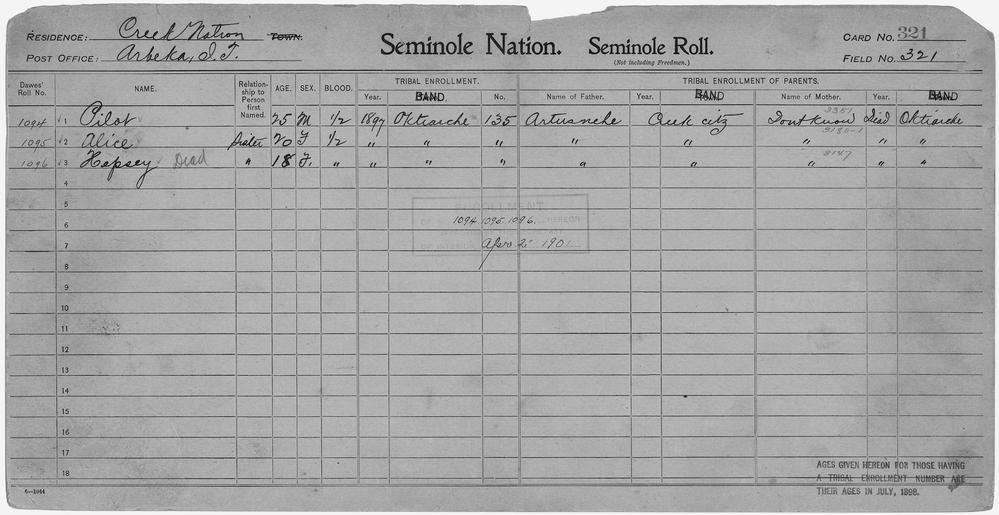 RESIDENCE: Creek Nation TOWN. Seminole Nation. Seminole Roll. CARD NO. 321
POST OFFICE: Arbeka, I. T. (Not including Freedmen.) FIELD NO. 321
Dawes' Roll No. NAME. Relationship to Person first Named. AGE. SEX. BLOOD. TRIBAL ENROLLMENT. TRIBAL ENROLLMENT OF PARENTS.
Year. BAND No. Name of Father. Year. BAND Name of Mother. Year. BAND
1094 1 Pilot 25 M 1/2 1897 Oktiarche 135 Artusnche Creek citz Dont know 3351 Died Oktiarche
1095 2 Alice Sister 20 F 1/2 " " " " " " 3180-1 " "
1096 3 Hepsey Dead " 18 F. " " " " " " " 3147 " "
4
5
ENROLLMENT
6 1094 1095 1096. HEREON
7 Apr 2 1901
8
9
10
11
12
13
14
15
16
17
18
AGES GIVEN HEREON FOR THOSE HAVING
A TRIBAL ENROLLMENT NUMBER ARE
THEIR AGES IN JULY, 1898.
6—1044